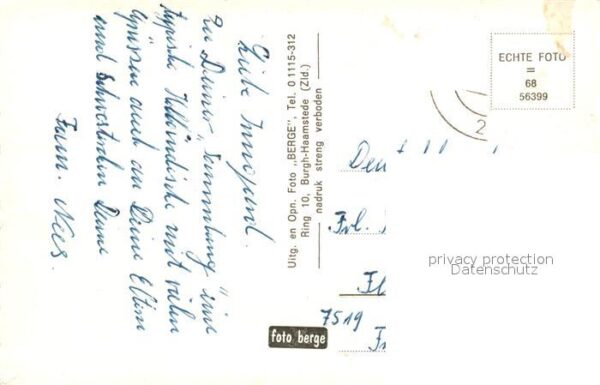 Liebe Irmgard.
Zu Deiner „Sammlung" eine
typische Holländische mit vielen
Grüssen auch an Deine Eltern
und Schwesterlein Deine
Fam. Nees.
Uitg. en Opn. Foto „BERGE", Tel. 0 1115-312
Ring 10, Burgh-Haamstede (Zld.)
nadruk streng verboden
foto berge
ECHTE FOTO
=
68
56399
2
Frl.
7519
privacy protection
Datenschutz